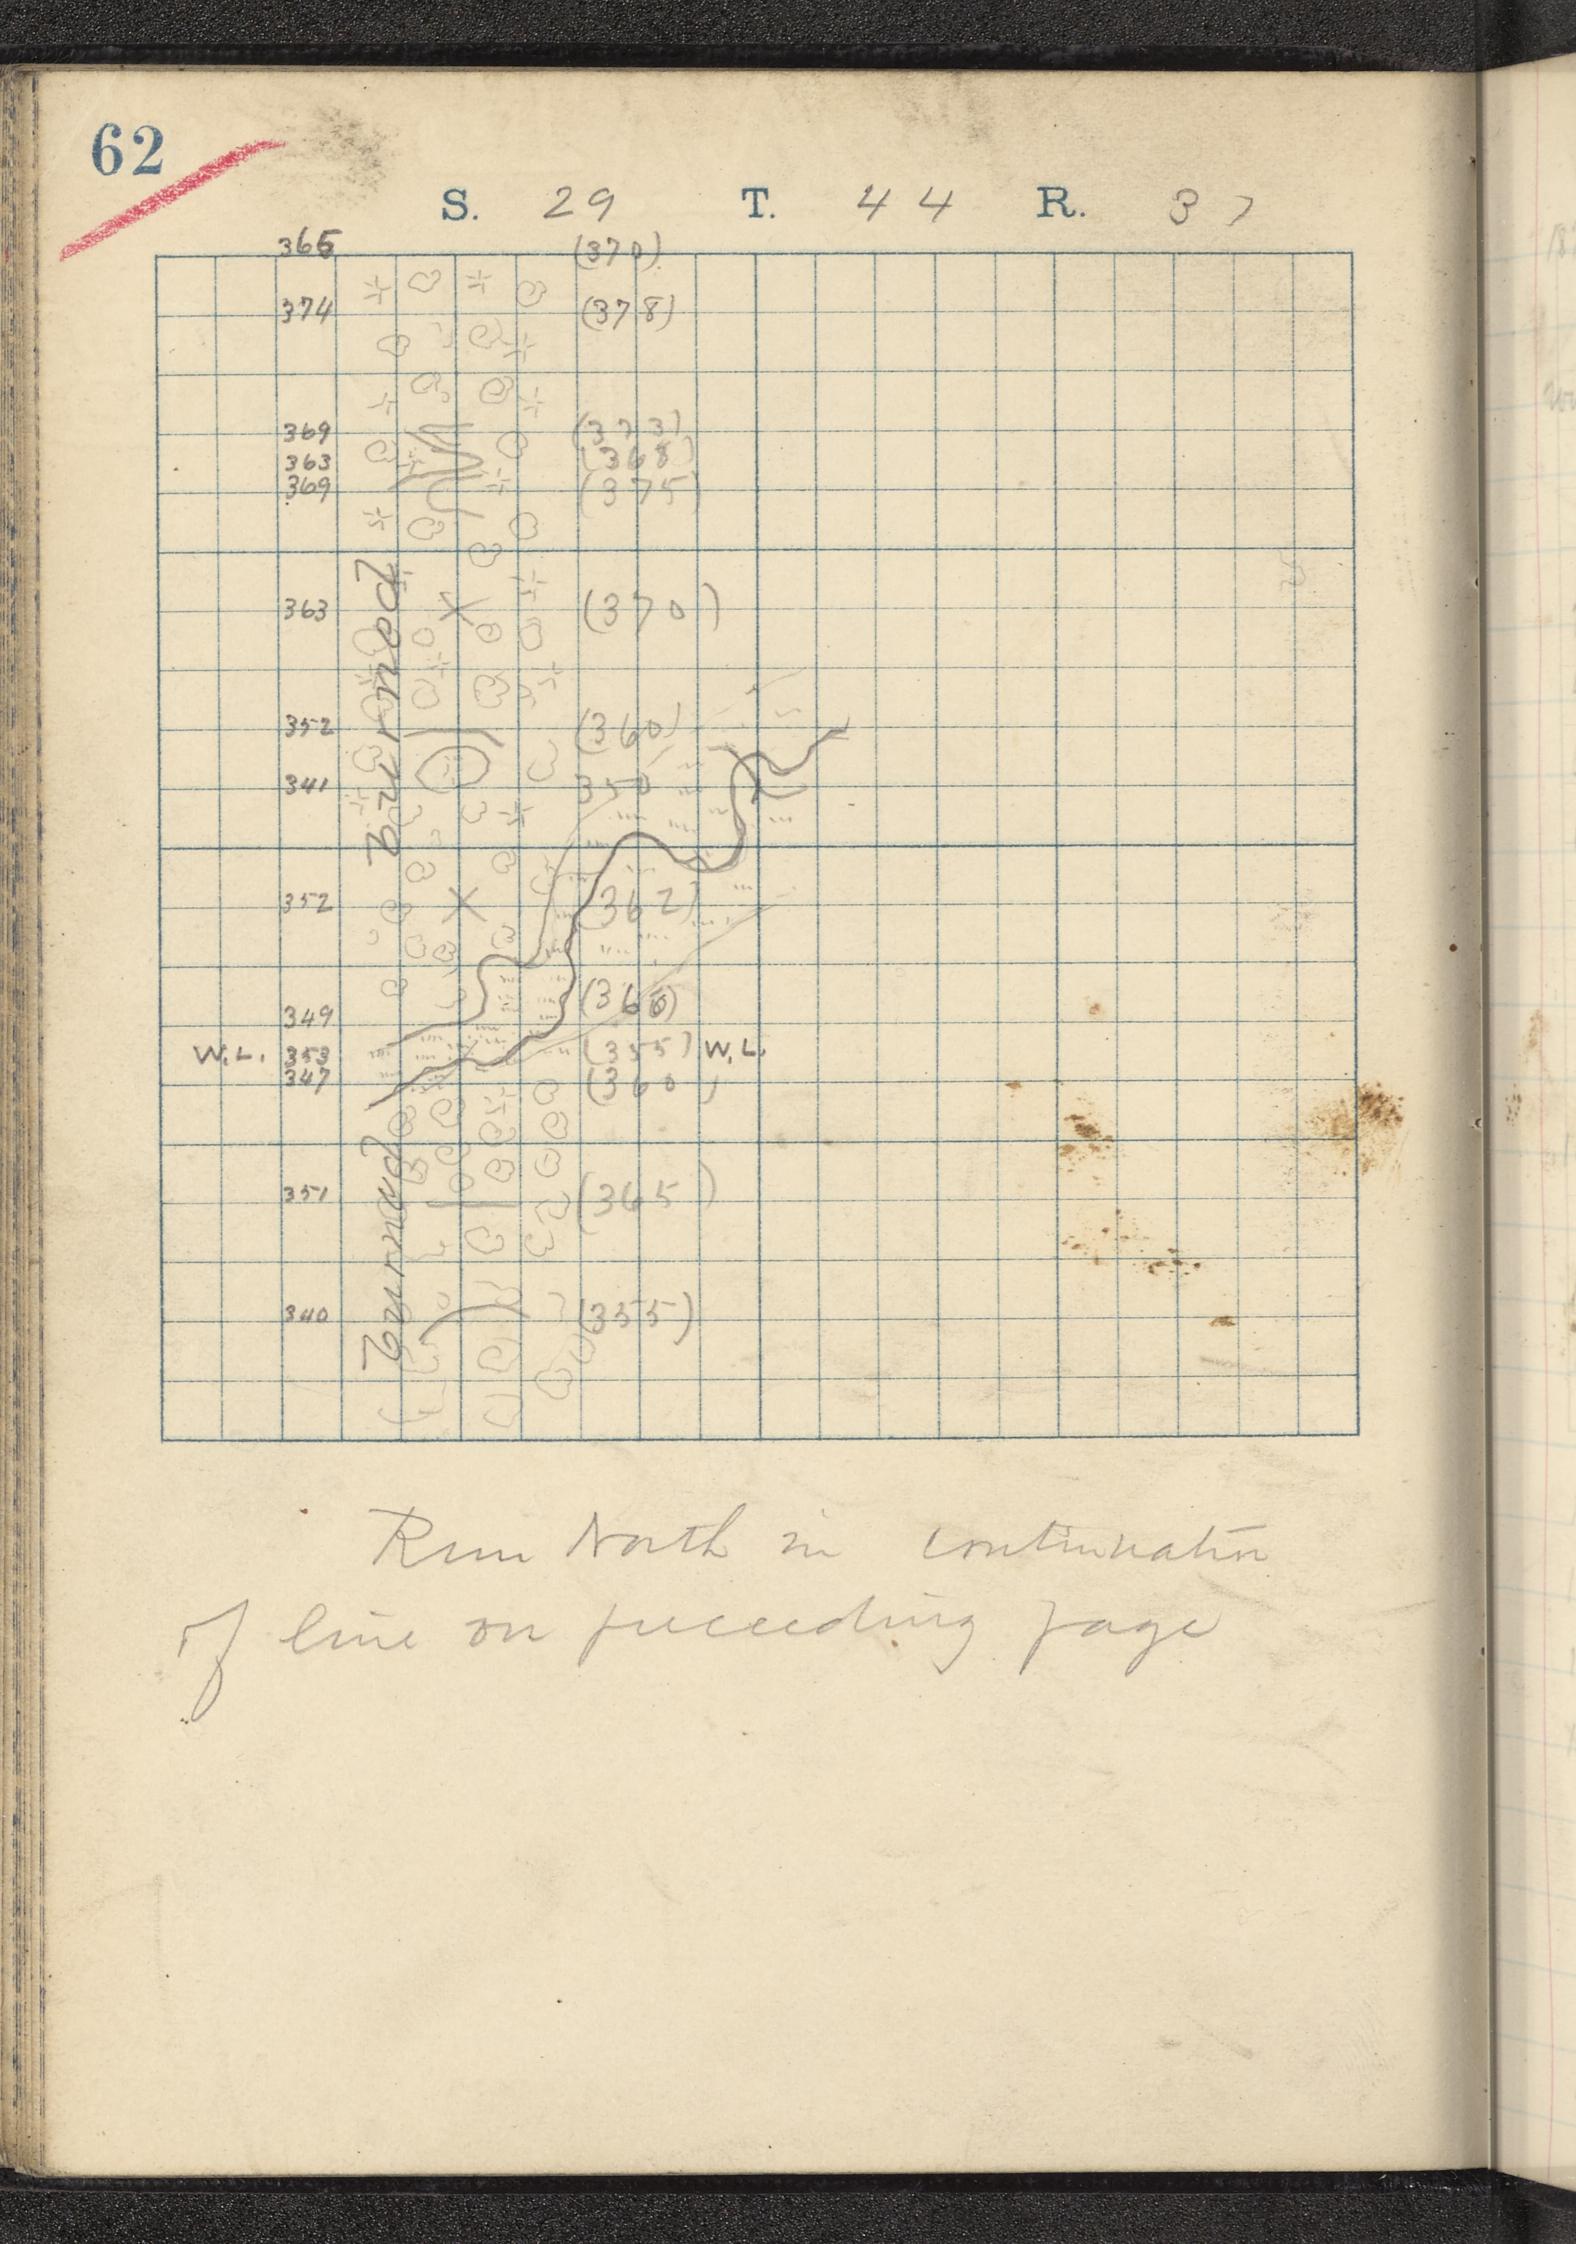 62
S. 29 T. 44 R. 37
365 (370)
374 (378)
369 (373)
363 (368)
369 (375)
363 (370)
352 (360)
341 350
352 (362)
349 (360)
W.L. 353 (355) W.L.
347 (360)
351 (365)
340 (355)
burned
burned
Run North in continuation
of line on preceeding page